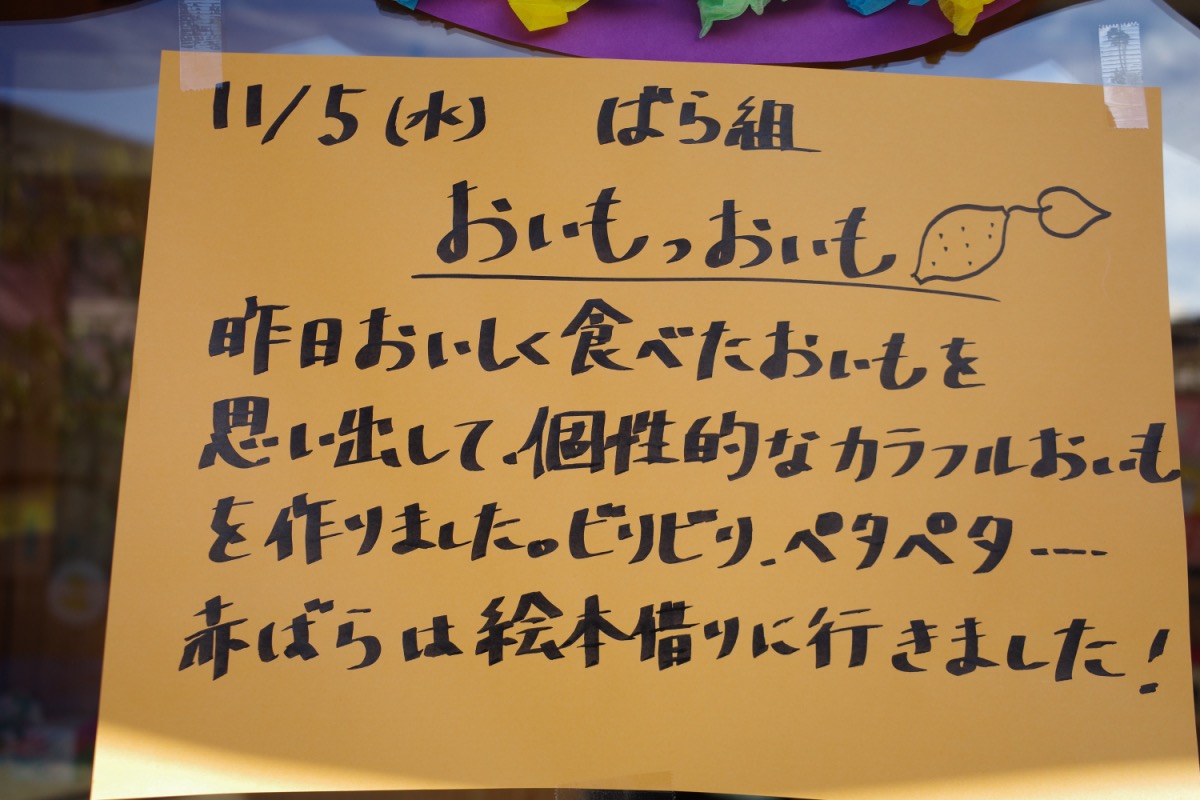 11/5(水) ばら組
おいもっおいも
昨日おいしく食べたおいもを
思い出して、個性的なカラフルおいも
を作りました。ビリビリ、ペタペタ----
赤ばらは絵本借りに行きました!